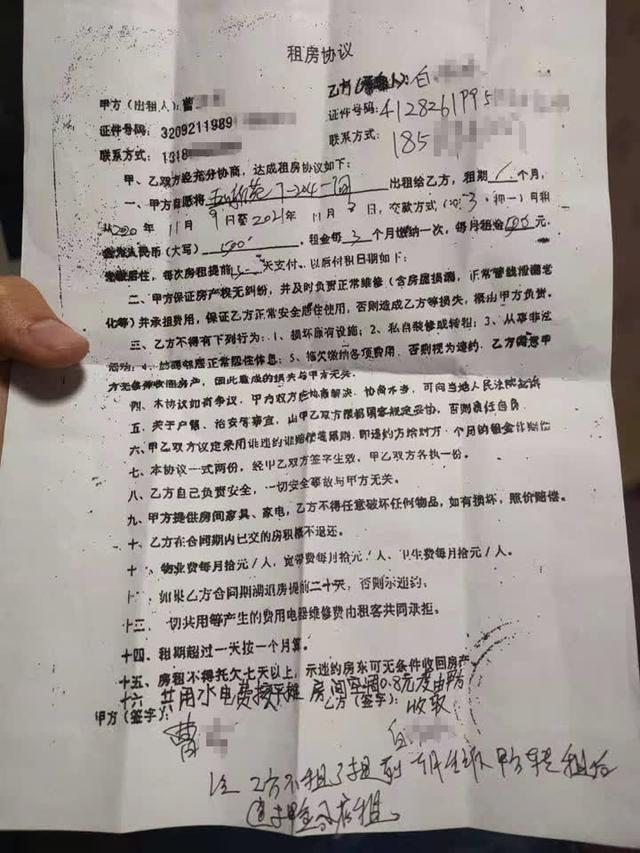 租房协议
甲方（出租人）：曹
乙方（ 人）：白
证件号码：3209211989
证件号码：4128261995
联系方式：
联系方式：185
甲、乙双方经充分协商，达成租房协议如下：
一、甲方自愿将 7-204-1间 出租给乙方，租期 个月，
年 11月 9日至2021年 11月 日，交款方式（ 3、押一）月租
人民币（大写） 1500 ，租金每 3 个月缴纳一次，每月租金500元，
居住，每次房租提前 天支付，以后付租日期如下：
二、甲方保证房产权无纠纷，并及时负责正常维修（含房屋损漏，正常管线泄漏老
化等）并承担费用，保证乙方正常安全居住使用，否则造成乙方等损失，概由甲方负责。
三、乙方不得有下列行为：1、损坏原有设施；2、私自装修或转租；3、从事非法
活动；4、妨碍邻居正常居住休息；5、拖欠缴纳各项费用，否则视为违约，乙方 甲
方无条件收回房产，因此造成的损失与甲方无关。
四、本协议如有争议，甲乙双方应协商解决，协商不力，可向当地人民法院起诉
五、关于户籍、治安等事宜，由甲乙双方根据国家规定妥协，否则责任自负
六、甲乙双方议定采用 违约 赔偿 原则，即违约方给对方 个月的租金作赔偿
七、本协议一式两份，经甲乙双方签字生效，甲乙双方各执一份。
八、乙方自己负责安全，一切安全事故与甲方无关。
九、甲方提供房间家具、家电，乙方不得任意破坏任何物品，如有损坏，照价赔偿。
十、乙方在合同期内已交的房租概不退还。
十一、物业费每月拾元/人，宽带费每月拾元/人、卫生费每月拾元/人。
十二、如果乙方合同期满退房提前二十天，否则示违约；
十三、一切共用等产生的费用电器维修费由租客共同承担。
十四、租期超过一天按一个月算。
十五、房租不得托欠七天以上，示违约房东可无条件收回房产
十六 共用水电费按平摊 房间空调0.8元度由甲方
甲方（签字）： 乙方（签字）： 收取
曹 白
注 乙方不租了提前 甲方 租后
退押金